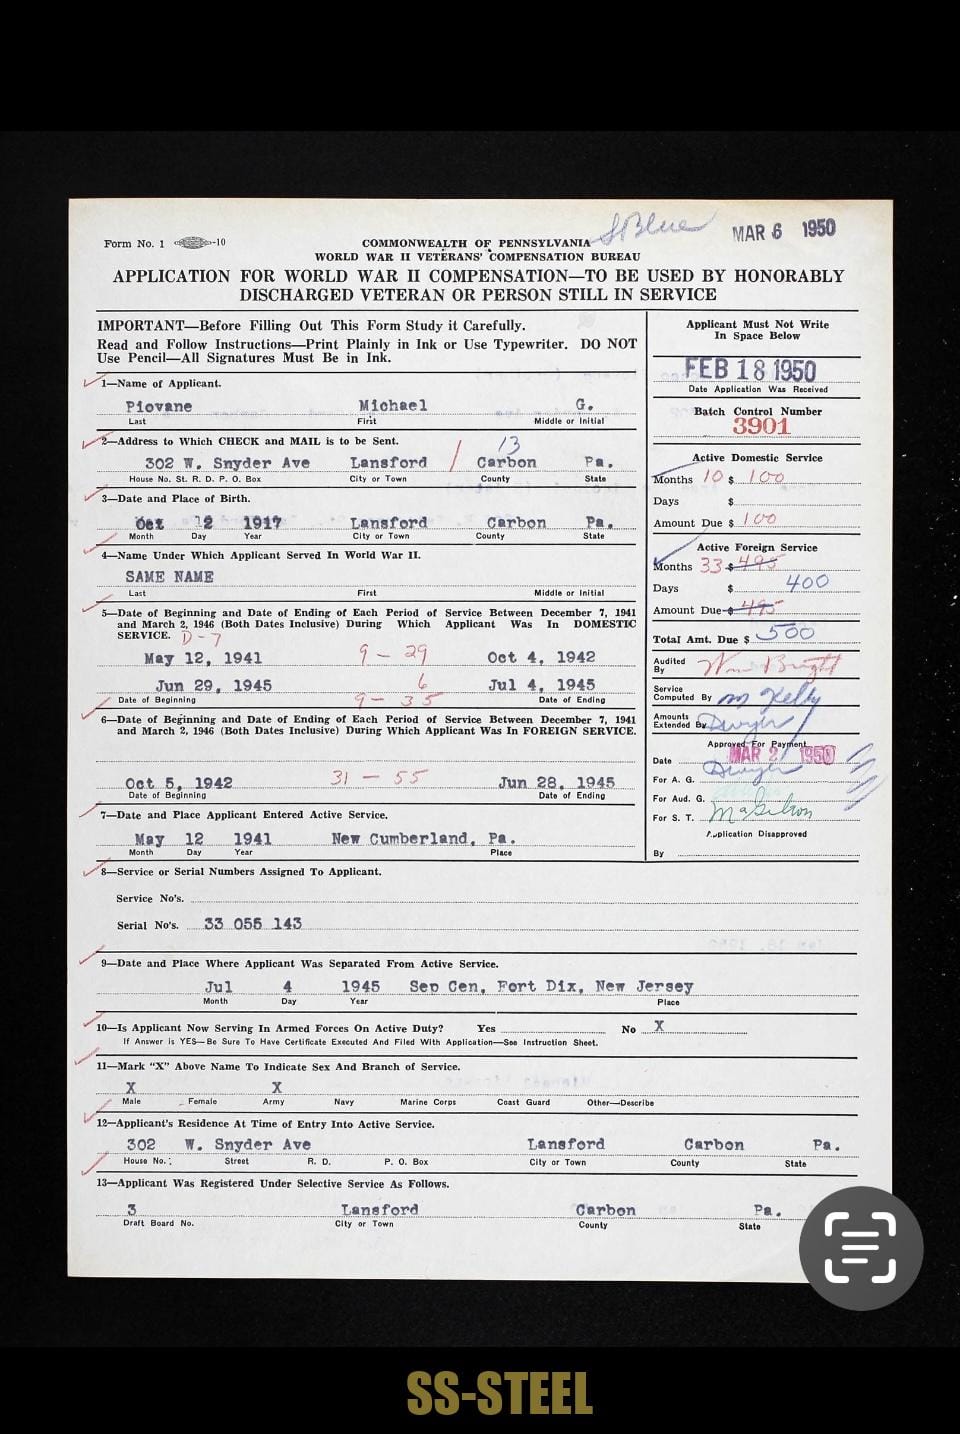 Form No. 1 -10
S Blue
MAR 6 1950
COMMONWEALTH OF PENNSYLVANIA
WORLD WAR II VETERANS' COMPENSATION BUREAU
APPLICATION FOR WORLD WAR II COMPENSATION—TO BE USED BY HONORABLY
DISCHARGED VETERAN OR PERSON STILL IN SERVICE
IMPORTANT—Before Filling Out This Form Study it Carefully.
Read and Follow Instructions—Print Plainly in Ink or Use Typewriter. DO NOT
Use Pencil—All Signatures Must Be in Ink.
1—Name of Applicant.
Piovane Michael G.
Last First Middle or Initial
2—Address to Which CHECK and MAIL is to be Sent.
13
302 W. Snyder Ave Lansford / Carbon Pa.
House No. St. R. D. P. O. Box City or Town County State
3—Date and Place of Birth.
Oct 12 1917 Lansford Carbon Pa.
Month Day Year City or Town County State
4—Name Under Which Applicant Served In World War II.
SAME NAME
Last First Middle or Initial
5—Date of Beginning and Date of Ending of Each Period of Service Between December 7, 1941
and March 2, 1946 (Both Dates Inclusive) During Which Applicant Was In DOMESTIC
SERVICE. D-7
May 12, 1941 9 - 29 Oct 4, 1942
Jun 29, 1945 6 Jul 4, 1945
Date of Beginning 9 - 35 Date of Ending
6—Date of Beginning and Date of Ending of Each Period of Service Between December 7, 1941
and March 2, 1946 (Both Dates Inclusive) During Which Applicant Was In FOREIGN SERVICE.
Oct 5, 1942 31 - 55 Jun 28, 1945
Date of Beginning Date of Ending
7—Date and Place Applicant Entered Active Service.
May 12 1941 New Cumberland, Pa.
Month Day Year Place
Applicant Must Not Write
In Space Below
FEB 18 1950
Date Application Was Received
Batch Control Number
3901
Active Domestic Service
Months 10 $ 100
Days $
Amount Due $ 100
Active Foreign Service
Months 33 $ 495
Days $ 400
Amount Due $ 495
Total Amt. Due $ 500
Audited
By Wm Bright
Service
Computed By M Kelly
Amounts
Extended By Dwyer
Approved For Payment
Date MAR 2 1950
For A. G. Dwyer
For Aud. G.
For S. T.
Application Disapproved
By
8—Service or Serial Numbers Assigned To Applicant.
Service No's.
Serial No's. 33 055 143
9—Date and Place Where Applicant Was Separated From Active Service.
Jul 4 1945 Sep Cen, Fort Dix, New Jersey
Month Day Year Place
10—Is Applicant Now Serving In Armed Forces On Active Duty? Yes No X
If Answer is YES—Be Sure To Have Certificate Executed And Filed With Application—See Instruction Sheet.
11—Mark "X" Above Name To Indicate Sex And Branch of Service.
X X
Male Female Army Navy Marine Corps Coast Guard Other—Describe
12—Applicant's Residence At Time of Entry Into Active Service.
302 W. Snyder Ave Lansford Carbon Pa.
House No. Street R. D. P. O. Box City or Town County State
13—Applicant Was Registered Under Selective Service As Follows.
3 Lansford Carbon Pa.
Draft Board No. City or Town County State
SS-STEEL